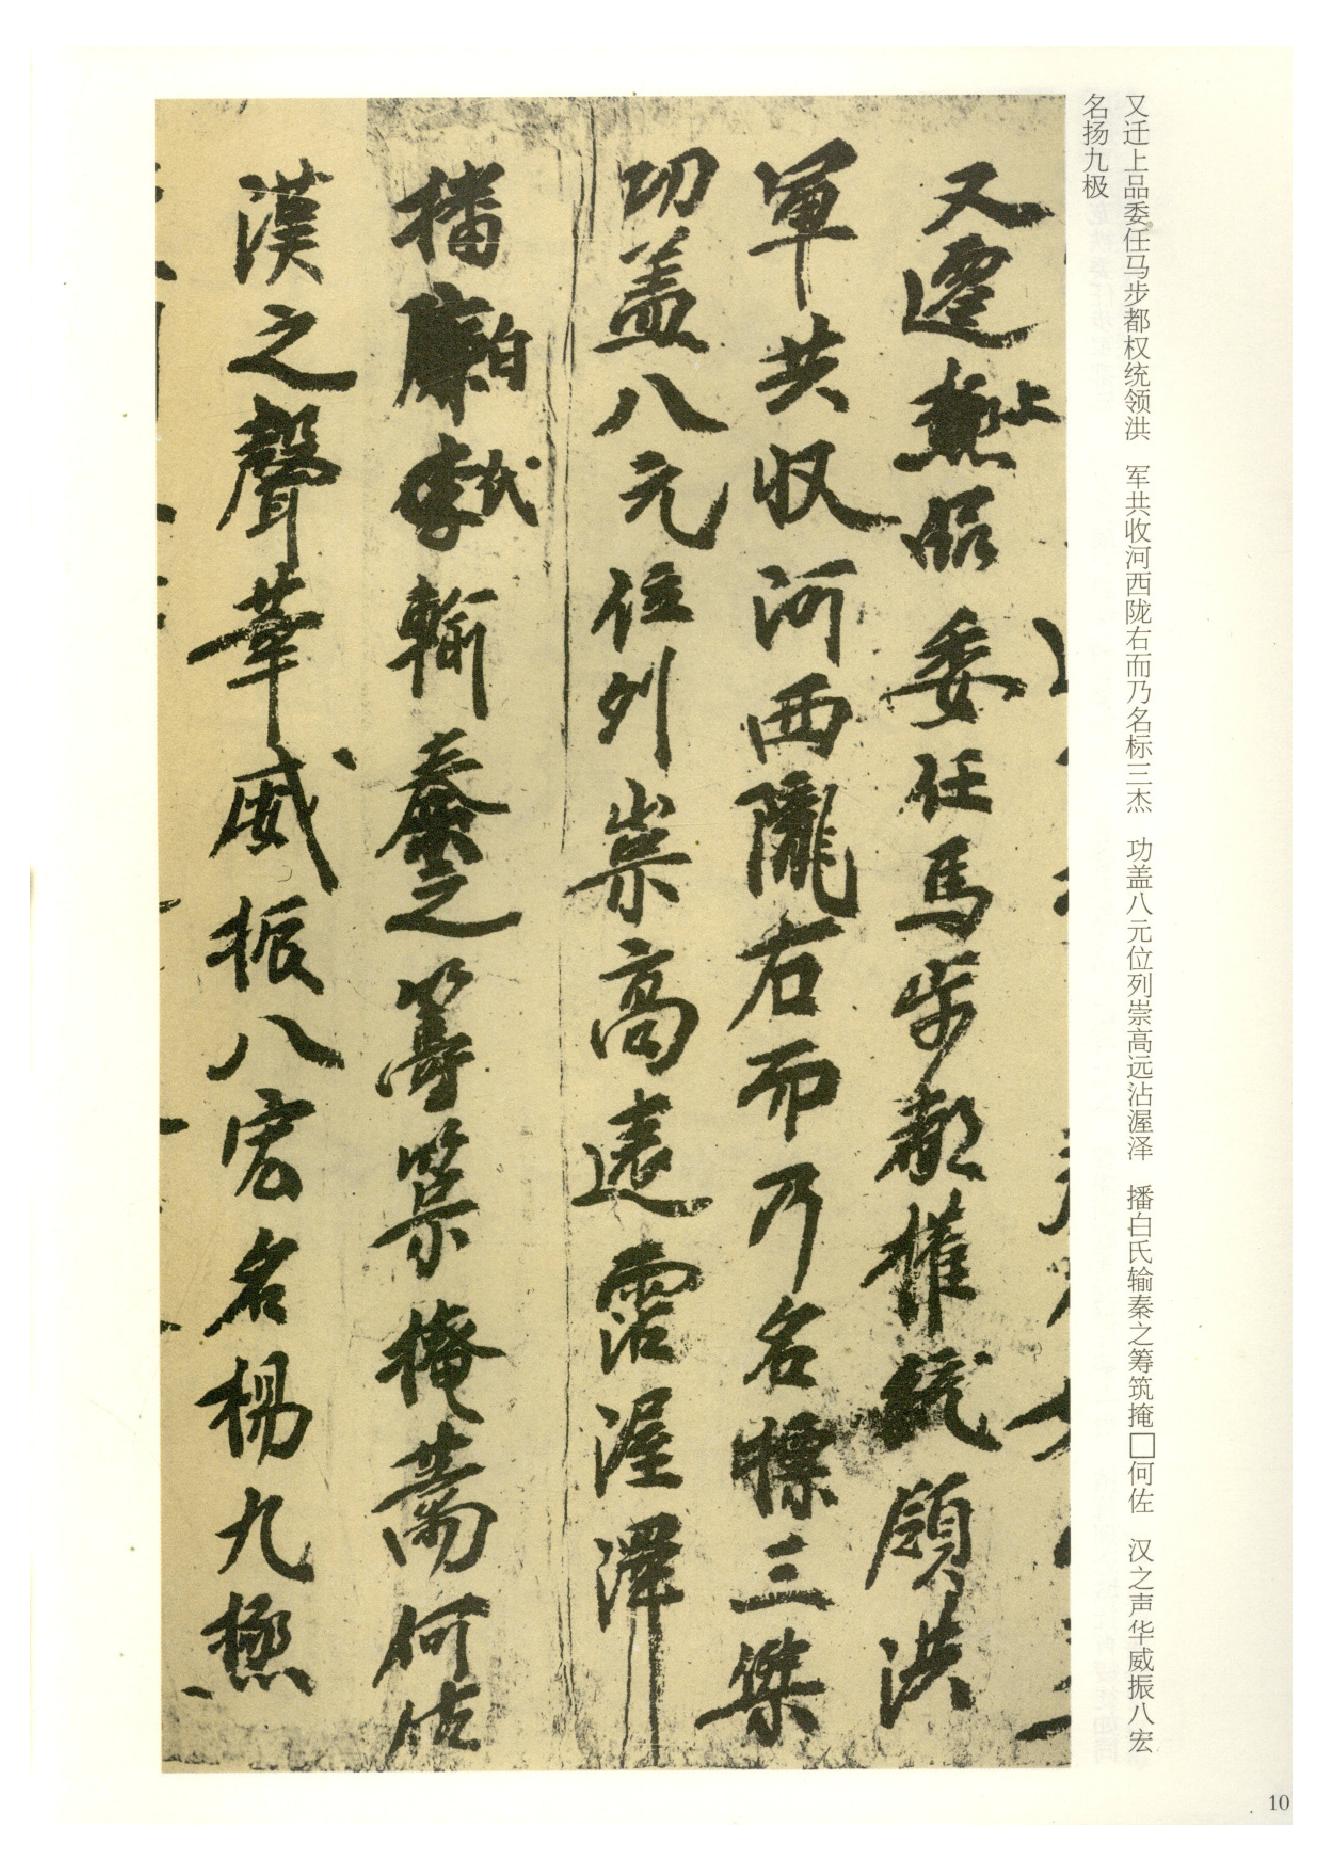 又迁上品委任马步都权统领洪　军共收河西陇右而乃名标三杰　功盖八元位列崇高远沾渥泽　播白氏输秦之筹筑掩□何佐　汉之声华威振八宏
名扬九极
又遷上品委任馬步都權統領洪
軍共収河西隴右而乃名標三傑
功盖八元位列崇高遠霑渥澤
播白氏輸秦之籌築掩蕭何佐
漢之聲華威振八宏名楊九極
10